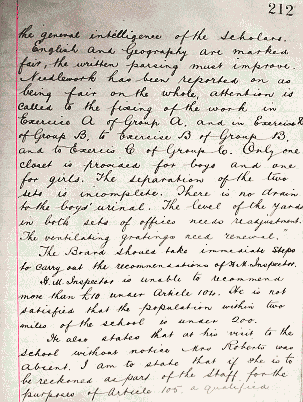 212
the general intelligence of the scholars.
English and Geography are marked
fair, the written parsing must improve.
Needlework has been reported on as
being fair on the whole, attention is
called to the fixing of the work in
Exercise A of Group A, and in Exercise
of Group B, to Exercise B of Group B,
and to Exercise C of Group C. Only one
closet is provided for boys and one
for girls. The separation of the two
sets is incomplete. There is no drain
to the boys' urinal. The level of the yards
in both sets of offices needs readjustment.
The ventilating gratings need renewal."
The Board should take immediate steps
to carry out the recommendations of H.M. Inspector.
H.M. Inspector is unable to recommend
more than £10 under Article 104. He is not
satisfied that the population within two
miles of the school is under 200.
He also states that at his visit to the
school without notice Mrs Roberts was
absent. I am to state that if she is to
be reckoned as part of the staff for the
purposes of Article 105 a qualified